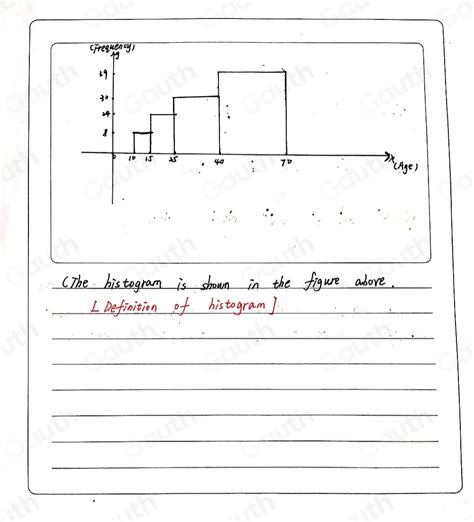 (Frequency)
y
39
30
24
8
0 10 15 25 40 70 x (Age)
(The histogram is shown in the figure above.
[Definition of histogram]
Gauth